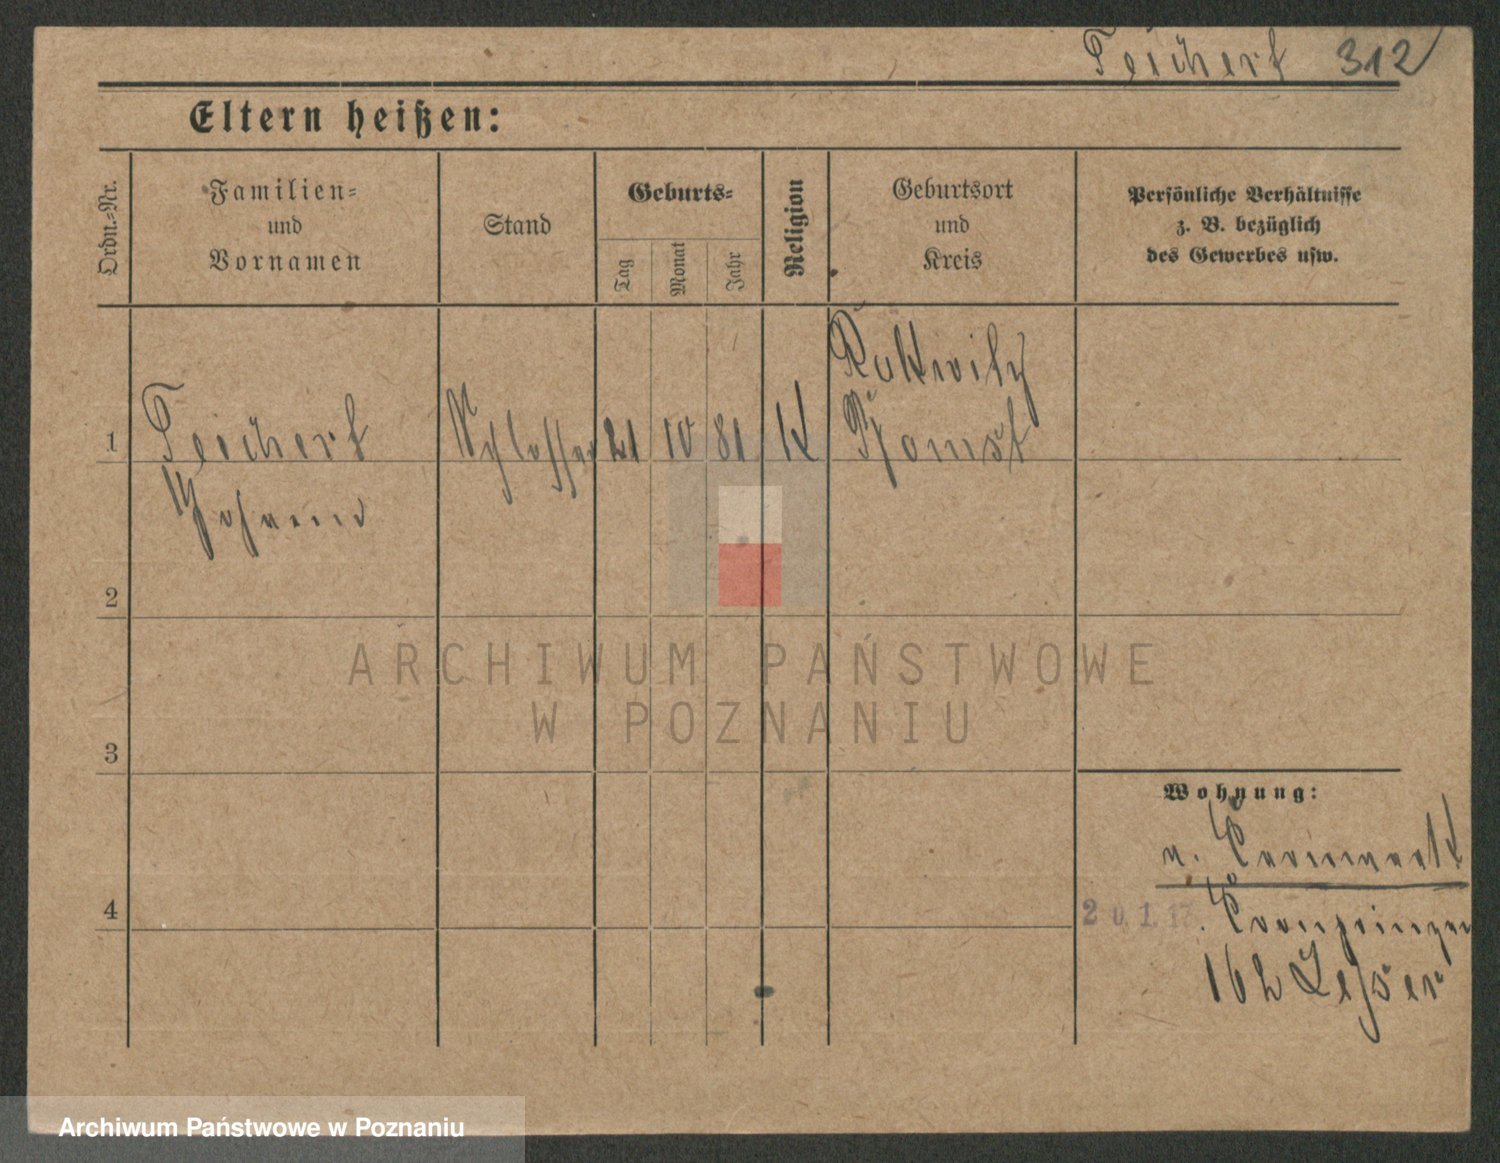 Teichert 312
Eltern heißen:
Ordn.-Nr.
Familien-
und
Vornamen
Stand
Geburts-
Tag
Monat
Jahr
Religion
Geburtsort
und
Kreis
Persönliche Verhältnisse
z. B. bezüglich
des Gewerbes usw.
1
Teichert
Johann
Schlosser
21
10
81
K
Bomst
2
3
4
Wohnung:
n.
20.1.17.
Kronprinzen
162 Lesser
ARCHIWUM PAŃSTWOWE
W POZNANIU
Archiwum Państwowe w Poznaniu